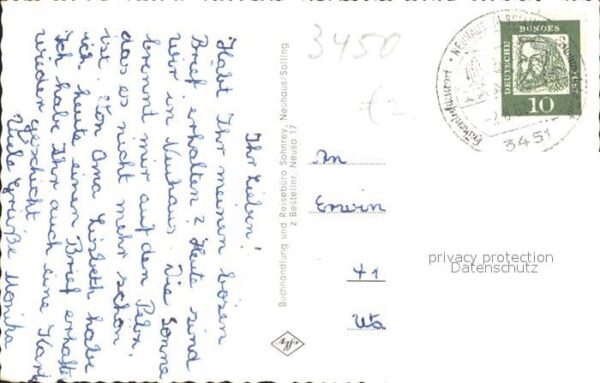 Ihr Lieben!
Habt Ihr meinen bösen
Brief erhalten? Heute sind
wir in Neuhaus. Die Sonne
brennt mir auf den Pelz,
das es nicht mehr schön
ist. Von Oma Liesbeth habe
ich heute einen Brief erhalten
Ich habe Ihr auch eine Karte
wieder geschickt
Viele Grüße Monika
Buchhandlung und Reisebüro Sohnrey, Neuhaus/Solling
Z Bestellnr. Neuso 17
3450
DEUTSCHE BUNDESPOST
10
3451
An
Erwin
+1
Uta
privacy protection
Datenschutz